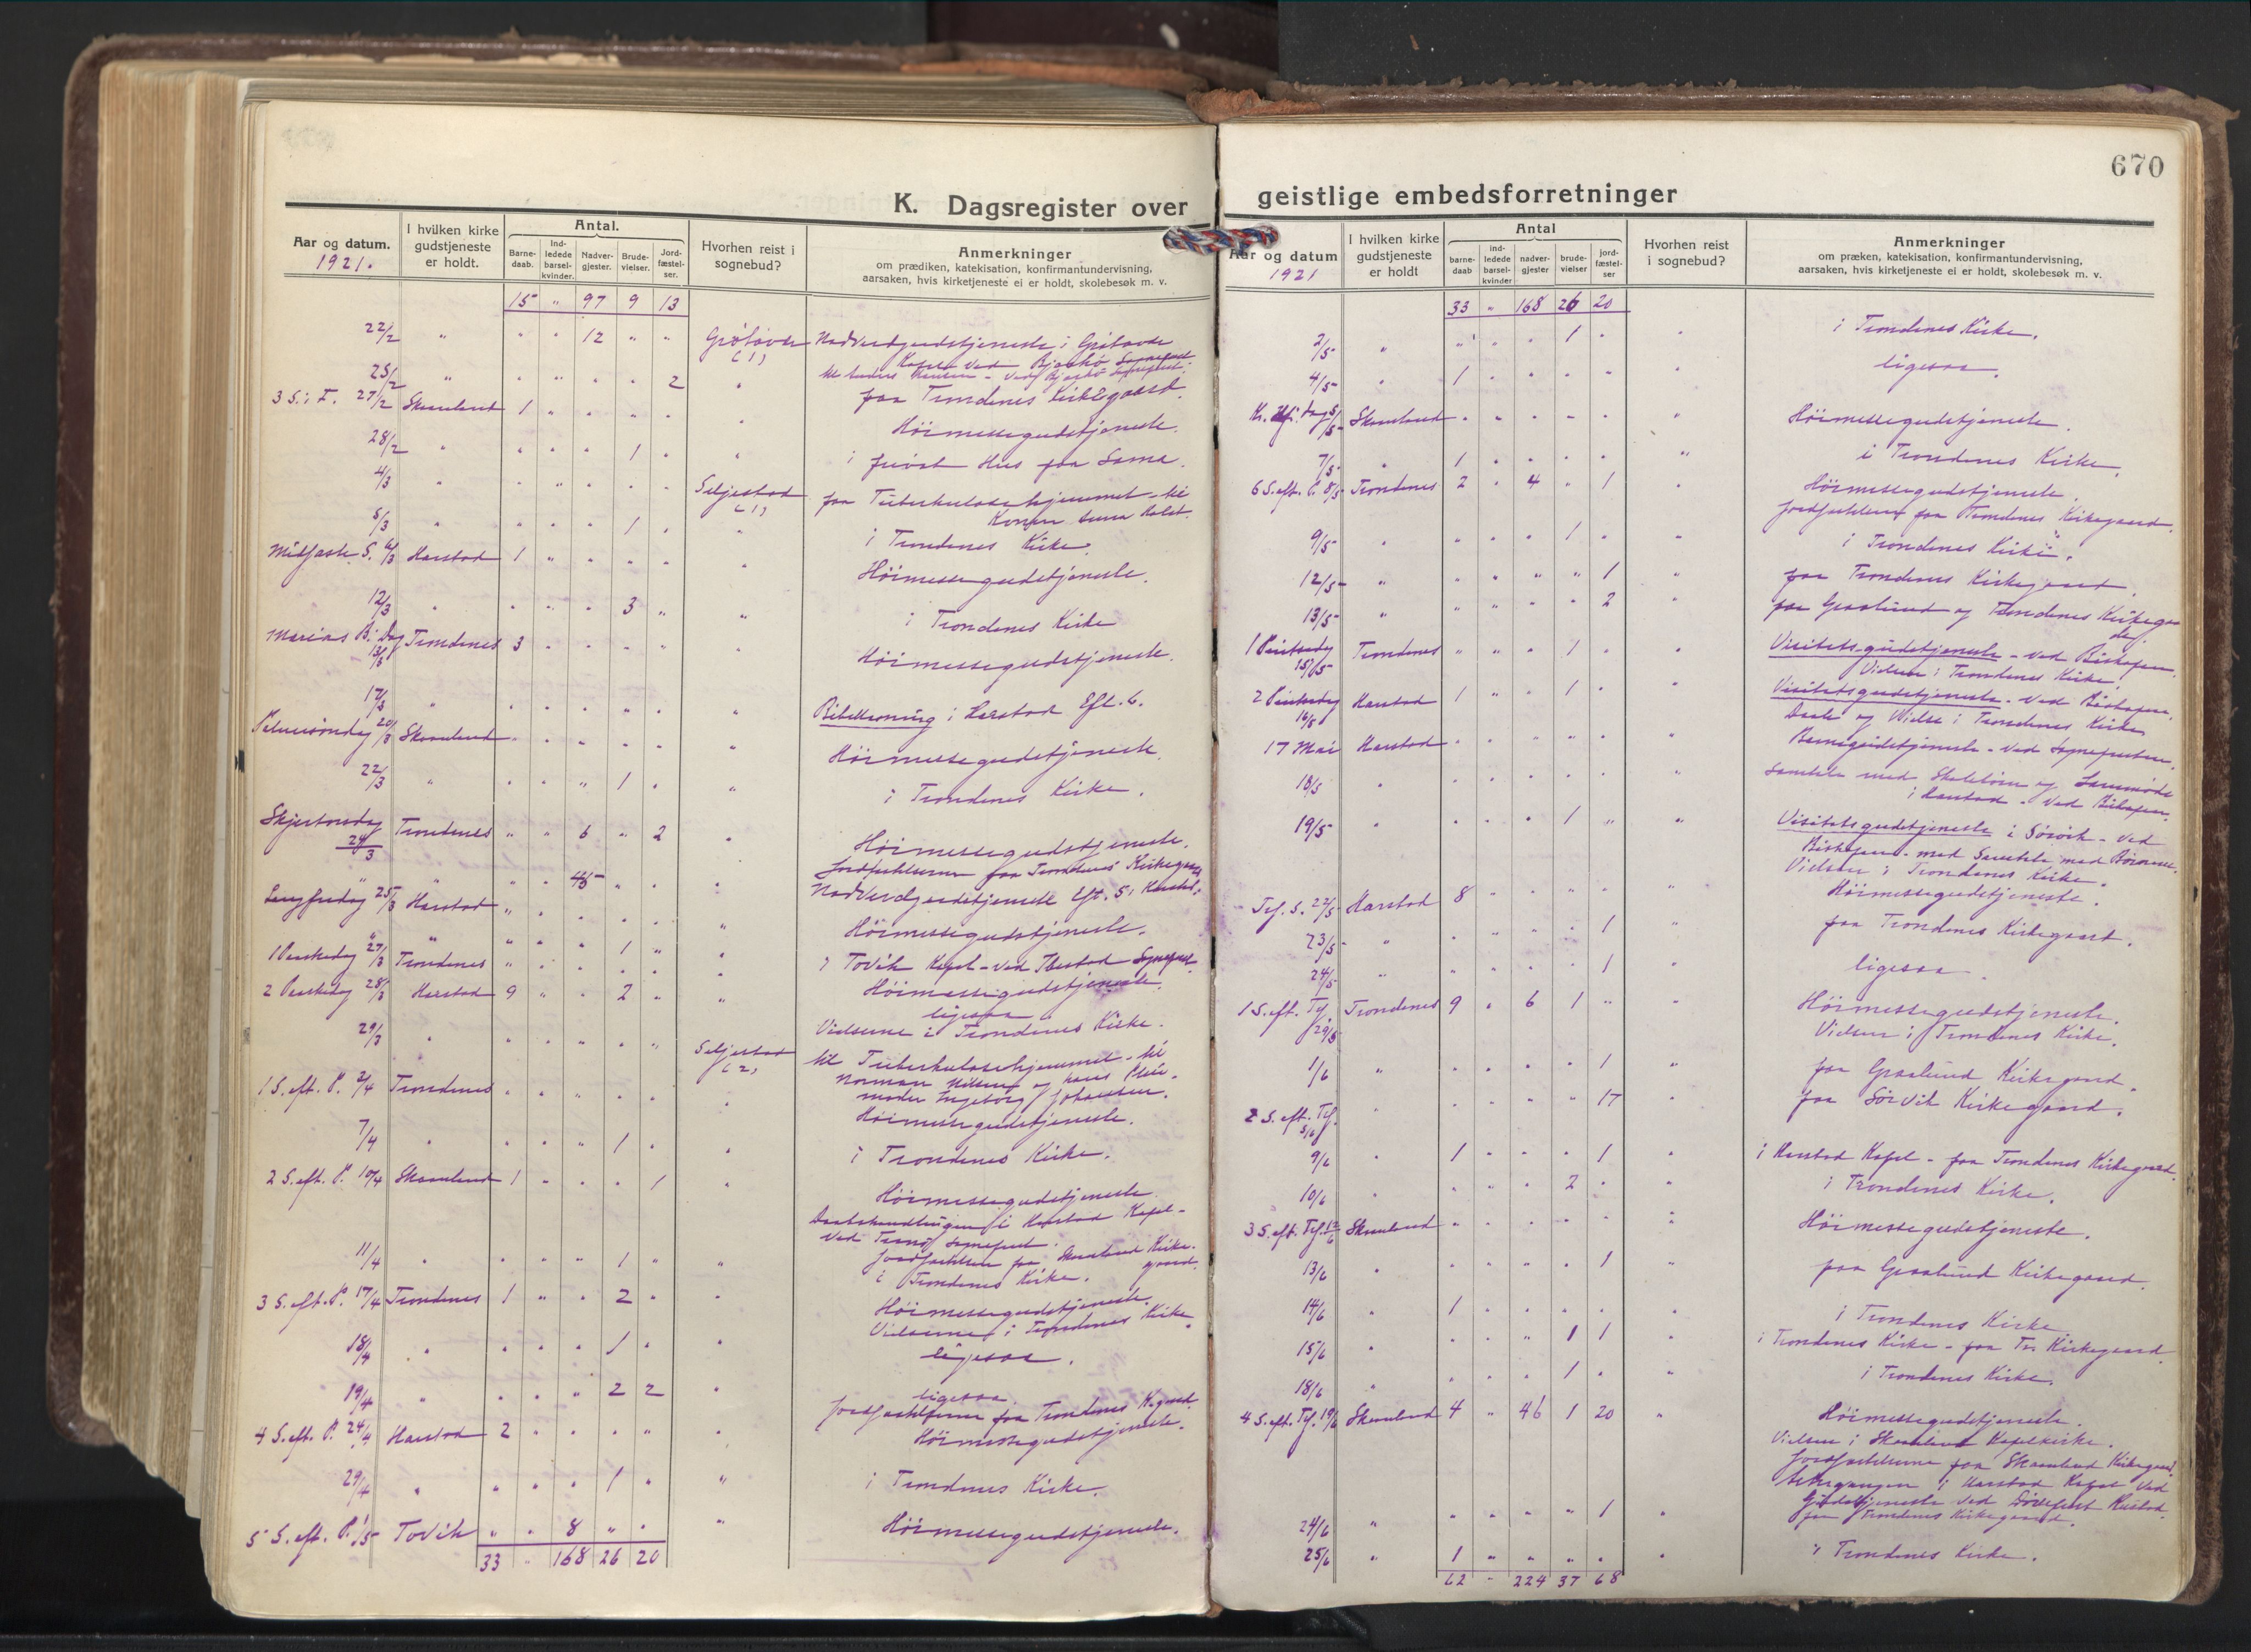 670
K. Dagsregister over
Aar og datum.
1921.
I hvilken kirke gudstjeneste er holdt.
Antal.
Barne-daab.
Ind-ledede barsel-kvinder.
Nadver-gjester.
Brude-vielser.
Jord-fæstel-ser.
Hvorhen reist i sognebud?
Anmerkninger
om prædiken, katekisation, konfirmantundervisning,
aarsaken, hvis kirketjeneste ei er holdt, skolebesøk m. v.
15 " 97 9 13
22/2 " " " 12 " " Nadverdgudstjeneste i
25/2 " " " " " 2 "
paa Trondenes Kirkegaard.
3 S. i F. 27/2 Skaanland 1 " " " " " Höimessegudstjeneste.
28/2 " " " " 1 " " i privat Hus paa Sama.
4/3 " " " " " " Seljestad (1) paa Tuberkulosehjemmet - til
5/3 " " " " 1 " " i Trondenes Kirke.
Midfaste S. 6/3 Harstad 1 " " " " " Höimessegudstjeneste.
12/3 " " " " 3 " " i Trondenes Kirke
Marias B. Dag 13/3 Trondenes 3 " " " " " Höimessegudstjeneste.
17/3 " " " " " " " i Harstad Eft. 6.
Palmesöndag 20/3 Skaanland " " " " " " Höimessegudstjeneste.
22/3 " " " " 1 " " i Trondenes Kirke.
Skjærtorsdag 24/3 Trondenes " " 6 " 2 " Höimessegudstjeneste.
Jordfæstelserne paa Trondenes Kirkegaard
" " " " 45 " " " Nadverdgudstjeneste Eft. 5 i Harstad.
Langfredag 25/3 Harstad " " " " " " Höimessegudstjeneste.
" " " " " 1 " " i Tovik Kapel - ved Ibestad Sognepr.
1 Paaskedag 27/3 Trondenes " " " " " " Höimessegudstjeneste.
2 Paaskedag 28/3 Harstad 9 " " 2 " " ligesaa
Vielserne i Trondenes Kirke.
29/3 " " " " " " Seljestad (2) til Tuberkulosehjemmet - til
Norman Nilsen og hans
moder Ingeborg Johansen.
1 S. eft. P. 3/4 Trondenes " " " " " " Höimessegudstjeneste.
7/4 " " " " 1 " " i Trondenes Kirke.
2 S. eft. P. 10/4 Skaanland 1 " " " 1 " Höimessegudstjeneste
Daabshandlingen i Harstad Kapel -
ved Sognepræst.
Jordfæstelsen paa Skaanland Kirkegaard.
11/4 " " " " 1 " " i Trondenes Kirke.
3 S. eft. P. 17/4 Trondenes 1 " " 2 " " Höimessegudstjeneste.
Vielserne i Trondenes Kirke.
18/4 " " " " 1 " " ligesaa.
19/4 " " " " 2 2 " ligesaa
Jordfæstelserne paa Trondenes K.gaard.
4 S. eft. P. 24/4 Harstad 2 " " " " " Höimessegudstjeneste.
29/4 " " " " 1 " " i Trondenes Kirke.
5 S. eft. P. 1/5 Tovik " " 8 " " " Höimessegudstjeneste.
33 " 168 26 20
geistlige embedsforretninger
Aar og datum
1921
I hvilken kirke gudstjeneste er holdt
Antal
barne-daab
ind-ledede barsel-kvinder
nadver-gjester
brude-vielser
jord-fæstel-ser
Hvorhen reist i sognebud?
Anmerkninger
om præken, katekisation, konfirmantundervisning,
aarsaken, hvis kirketjeneste ei er holdt, skolebesøk m. v.
33 " 168 26 20
2/5 " " " " 1 " " i Trondenes Kirke.
4/5 " 1 " " " " " ligesaa.
Kr. Hf. Dag 5/5 Skaanland " " " " " " Höimessegudstjeneste.
7/5 " 1 " " " " " i Trondenes Kirke
6 S. eft. P. 8/5 Trondenes 2 " 4 " 1 " Höimessegudstjeneste.
Jordfæstelsen paa Trondenes Kirkegaard.
9/5 " " " " 1 " " i Trondenes Kirke.
12/5 " " " " " 1 " paa Trondenes Kirkegaard.
13/5 " " " " " 2 " paa Graalund og Trondenes Kirkegaarde.
1 Pintsedag 15/5 Trondenes " " " 1 " " Visitatsgudstjeneste - ved Biskopen.
Vielsen i Trondenes Kirke.
2 Pintsedag 16/5 Harstad 1 " " 1 " " Visitatsgudstjeneste - ved Biskopen.
Daab og Vielse i Trondenes Kirke
17 Mai Harstad " " " " " " Barnegudstjeneste - ved Sognepresten.
18/5 " " " " " " " Samtale med Skolebörn og
i Harstad - ved Biskopen.
19/5 " " " " 1 " " Visitatsgudstjeneste i Sörvik - ved
Biskopen - med Samtale med Börnene.
Vielsen i Trondenes Kirke.
Tref. S. 22/5 Harstad 8 " " " " " Höimessegudstjeneste.
23/5 " " " " " 1 " paa Trondenes Kirkegaard.
24/5 " " " " " 1 " ligesaa
1 S. eft. Tref. 29/5 Trondenes 9 " 6 1 " " Höimessegudstjeneste.
Vielsen i Trondenes Kirke.
1/6 " " " " " 1 " paa Graalund Kirkegaard.
2 S. eft. Tref. 5/6 " " " " " 17 " paa Sörvik Kirkegaard.
9/6 " 1 " " " 1 " i Harstad Kapel - paa Trondenes Kirkegaard.
10/6 " " " " 2 " " i Trondenes Kirke.
3 S. eft. Tref. 12/6 Skaanland " " " " " " Höimessegudstjeneste.
13/6 " " " " " 1 " paa Graalund Kirkegaard.
14/6 " 1 " " " " " i Trondenes Kirke
15/6 " " " " 1 1 " i Trondenes Kirke - paa Tr. Kirkegaard.
18/6 " " " " 1 " " i Trondenes Kirke.
4 S. eft. Tref. 19/6 Skaanland 4 " 46 1 20 " Höimessegudstjeneste.
Vielsen i Skaanland Kapelkirke.
Jordfæstelserne paa Skaanland Kirkegaard.
i Harstad Kapel ved
Gudstjeneste ved
24/6 " " " " " 1 " paa Trondenes Kirkegaard.
25/6 " 1 " " " " " i Trondenes Kirke.
62 " 224 37 68